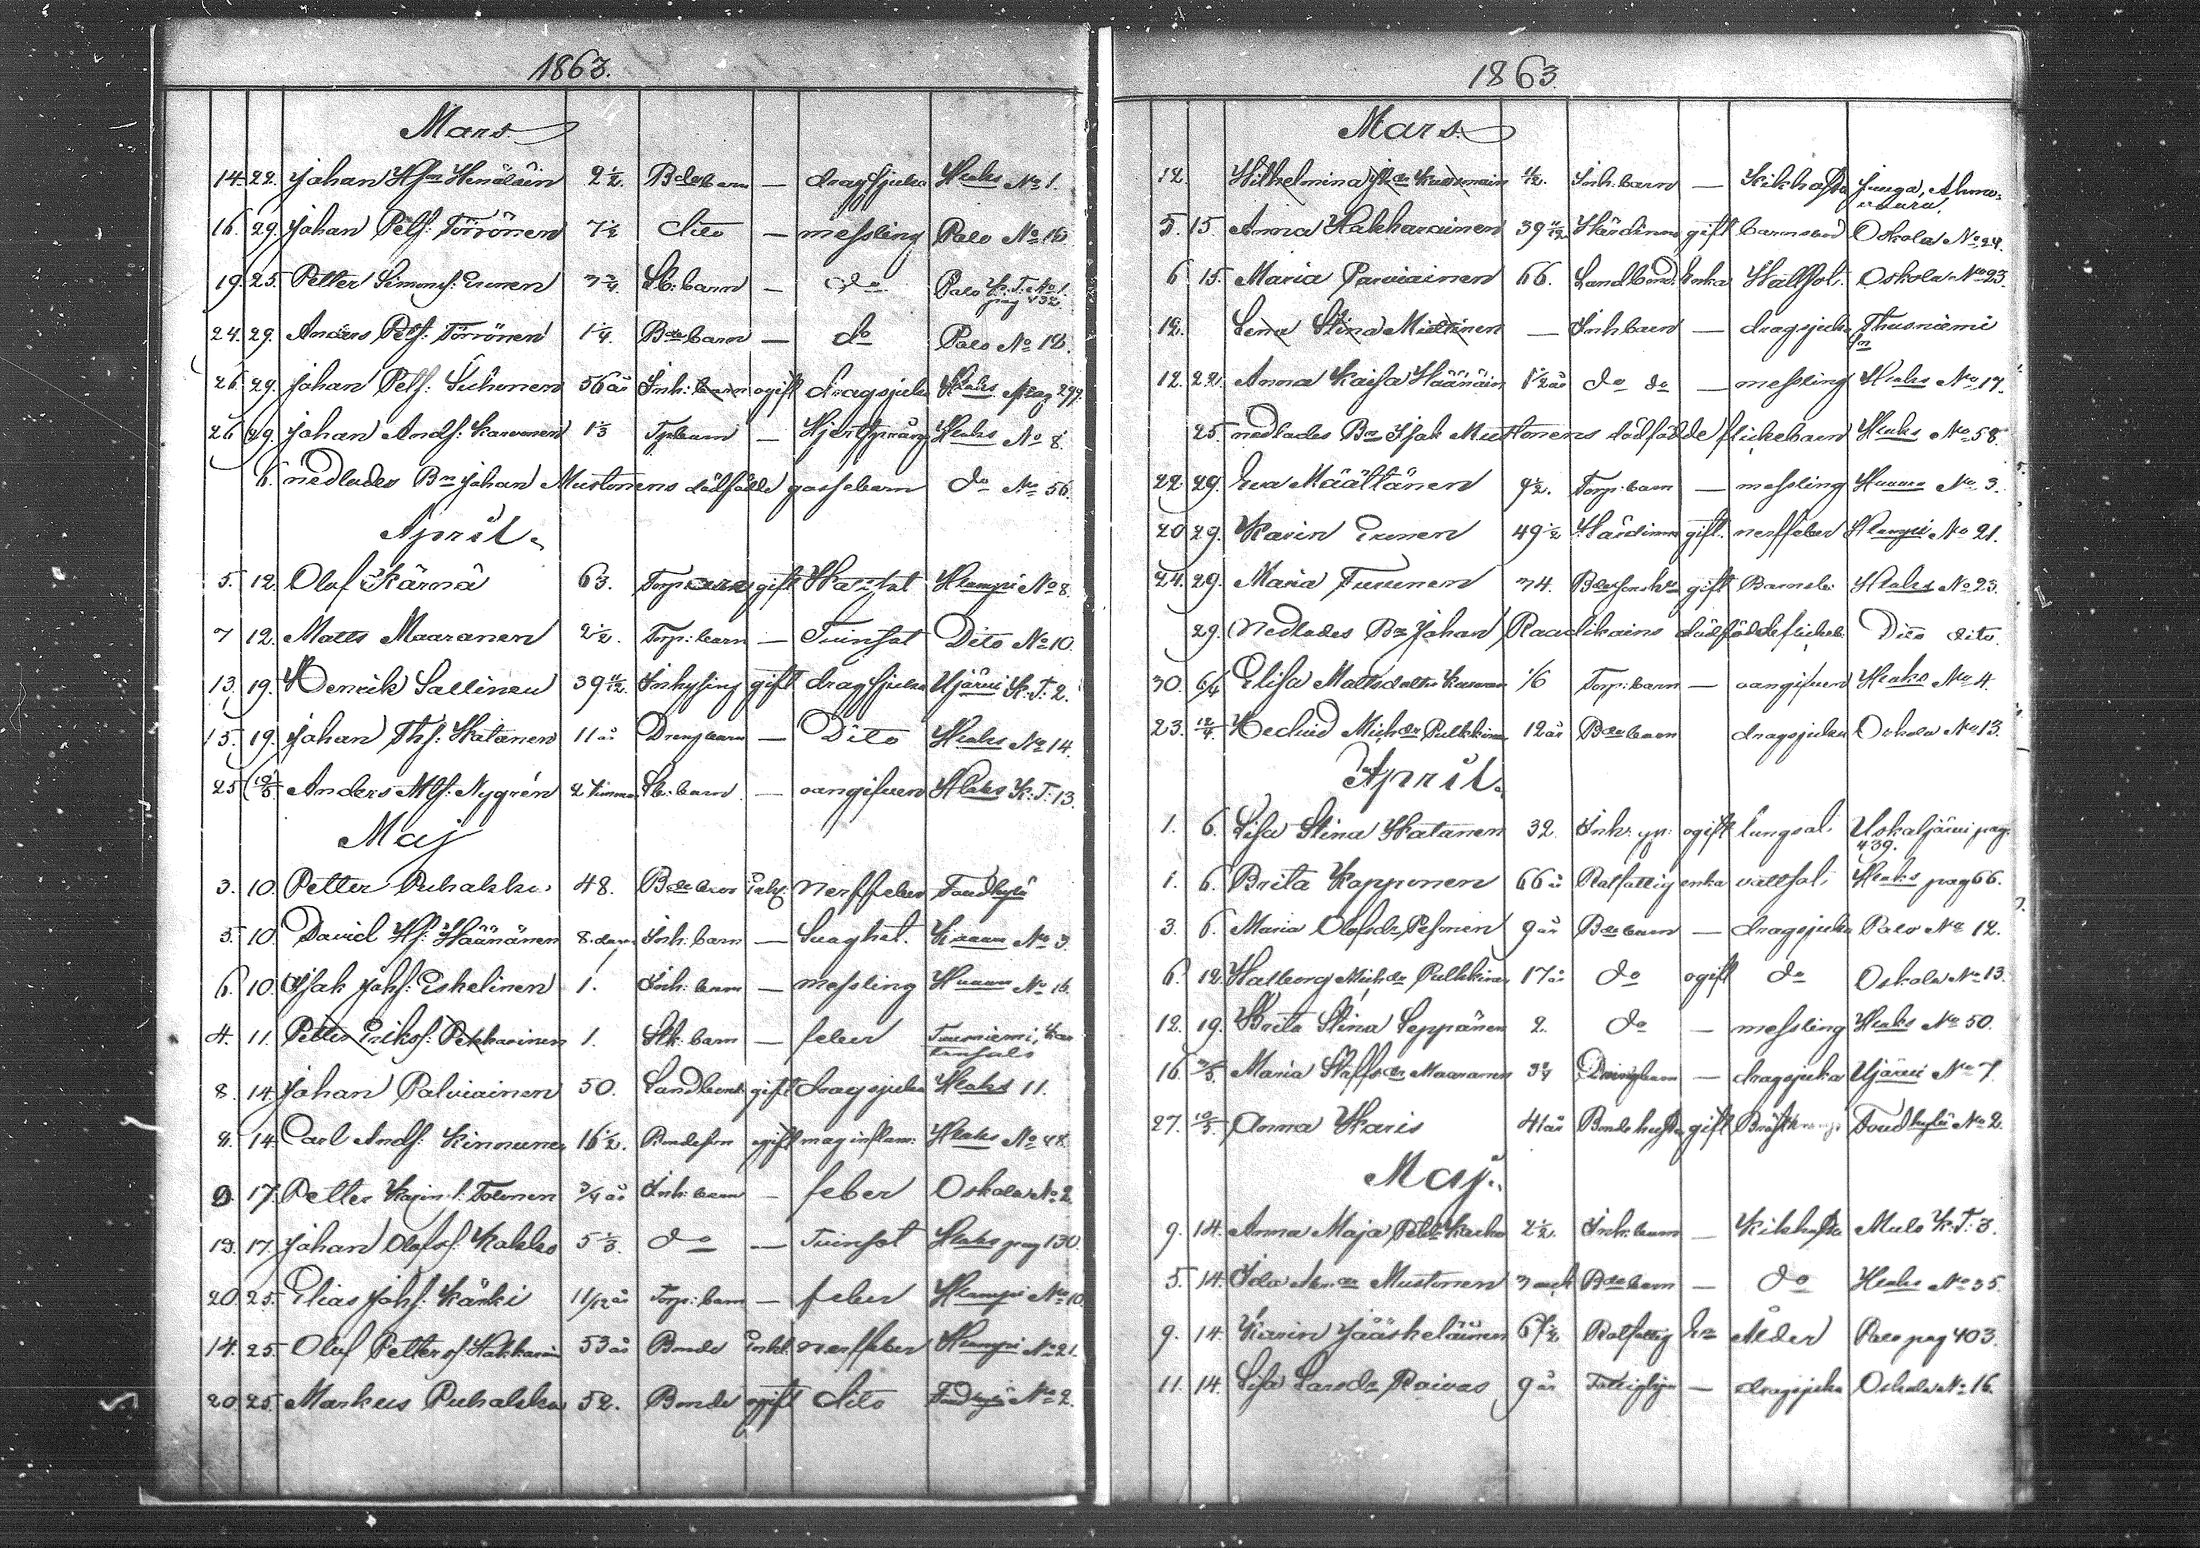 1863.
Mars
14. 22. Johan Hfm 2 1/2. Bdebarn — dragsjuka Hlaks No 1.
16. 29. Johan Petf: Törrönen 7 1/2 dito — messling Palo No 16
19. 25. Petter Simonsf: Eronen 3 3/4 Sk: barn — do Palo K. T. No 1. pag 432
24. 29. Anders Petf: Törrönen 1 1/4. Bde barn — do Palo No 18.
26. 29. Johan Petf: Sihvonen 56 år Inh: ogift dragsjuka Hlaks pag 299.
26 29. Johan Andf: Karvonen 1 1/3 Tpbarn — Hjertsprång Hlaks No 8.
6. nedlades Bn Johan Mustonens dödfödde gossebarn do No 56.
April.
5. 12. Olof Kärnä 63. Torp gift Hlampi No 8.
7 12. Matts Maaranen 2 1/2. Torp: barn — Tvinsot Dito No 10.
13. 19. Henrik Sallinen 39 Inhysing gift dragsjuka Ujärvi K. T. 2.
15. 19. Johan Thf: Hatanen 11 år Drengbarn — Dito Hlaks No 14.
25 10/5. Anders Mf: Nygrén 2 timmar Sk: barn — oangifven Hlaks K: T: 13.
Maj
3. 10. Petter Puhakka 48. Bde nerffeber Foudkylä
5. 10 David Hf: Häänänen 8. dagar Inh: barn — Svaghet. No 3.
6. 10. Isak Johf: Eskelinen 1. Inh: barn — messling No 16.
4. 11. Petter Eriksf: Pekkarinen 1. Sk: barn — feber Tuusniemi,
8. 14. Johan Palviainen 50. Landbonde gift dragsjuka Hlaks 11.
8. 14. Carl Andf: Kinnunen 16 1/2. Bondeson ogift mag inflam: Hlaks No 48.
9. 17. Petter Tolvonen 3/4 år Inh: barn — feber Oskola No 2.
13. 17. Johan Olofsf: Kakko 5 1/3. do — Tvinsot Hlaks pag 130.
20. 25. Elias Johf: Kärki 11/12 år Torp: barn — feber Hlampi No 10.
14. 25. Olof Pettersf Hakkarain 53 år Bonde Enkl. nerffeber Hlampi No 21.
20. 25. Markus Puhakka 52. Bonde ogift dito Foudkylä No 2.
1863.
Mars.
12. Wilhelmina Inh: barn — Kikhosta Juuga, Ahmovaara.
5. 15. Anna Hakkarainen 39 Värdinna gift barnsbörd Oskola No 24.
6 15. Maria Parviainen 66. Landbond. Enka Hållsot. Oskola No 23.
12. Lena Stina Miettinen — Inh barn — dragsjuka Thusniemi fn
12. 22. Anna Kaisa Häänäin 1 1/2 år do do — messling Hlaks No 17.
25. nedlades Bn Isak Mustonens dödfödde flickebarn Hlaks No 58.
22. 29. Eva Määttänen 9 1/2. Torp: barn — messling No 3.
20. 29. Karin Eronen 49 1/2 Värdinna gift. nerffeber Hlampi No 21.
24. 29. Maria Turunen 34. gift Barnsb: Hlaks No 23.
29. Nedlades Bn Johan Raadikains dödfödde flickeb. Dito dito.
30. 6/4 Elisa Mattsdotter 1/6 Torp: barn — oangifven Hlaks No 4.
23. 12/4 Hedvid Michdr Pulkkinen 12 år Bdebarn dragsjuka Oskola No 13.
April.
1. 6. Lisa Stina Hatanen 32. Inh: ogift lungsot. Uskaljärvi pag. 439.
1. 6. Brita Kapponen 66 år Rotfattig enka vattsot. Hlaks pag 66.
3. 6. Maria Olofsdr Pesonen 9 år Bdebarn — dragsjuka Palo No 12.
6. 12. Walborg Michdr Pulkkinen 17 år do ogift do Oskola No 13.
12. 19. Brita Stina Leppänen 2. do — messling Hlaks No 50.
16. 3/5. Maria Staffsdr Maaranen 3 3/4 Drengbarn — dragsjuka Ujärvi No 7.
27. 10/5. Anna Karis 41 år Bonde hustru gift Foudkylä No 2.
Maj.
9. 14. Anna Maja Petdr 2 1/2. Inh: barn — Kikhosta Mulo K. T. 3.
5. 14. Ida Mustonen 3 veck Bdebarn — do Hlaks No 35.
9. 14. Karin Jääskeläinen 67 1/2 Rotfattig En Ålder Palo pag 403.
11. 14. Lisa Larsdr Raivas 9 år — dragsjuka Oskola No 16.